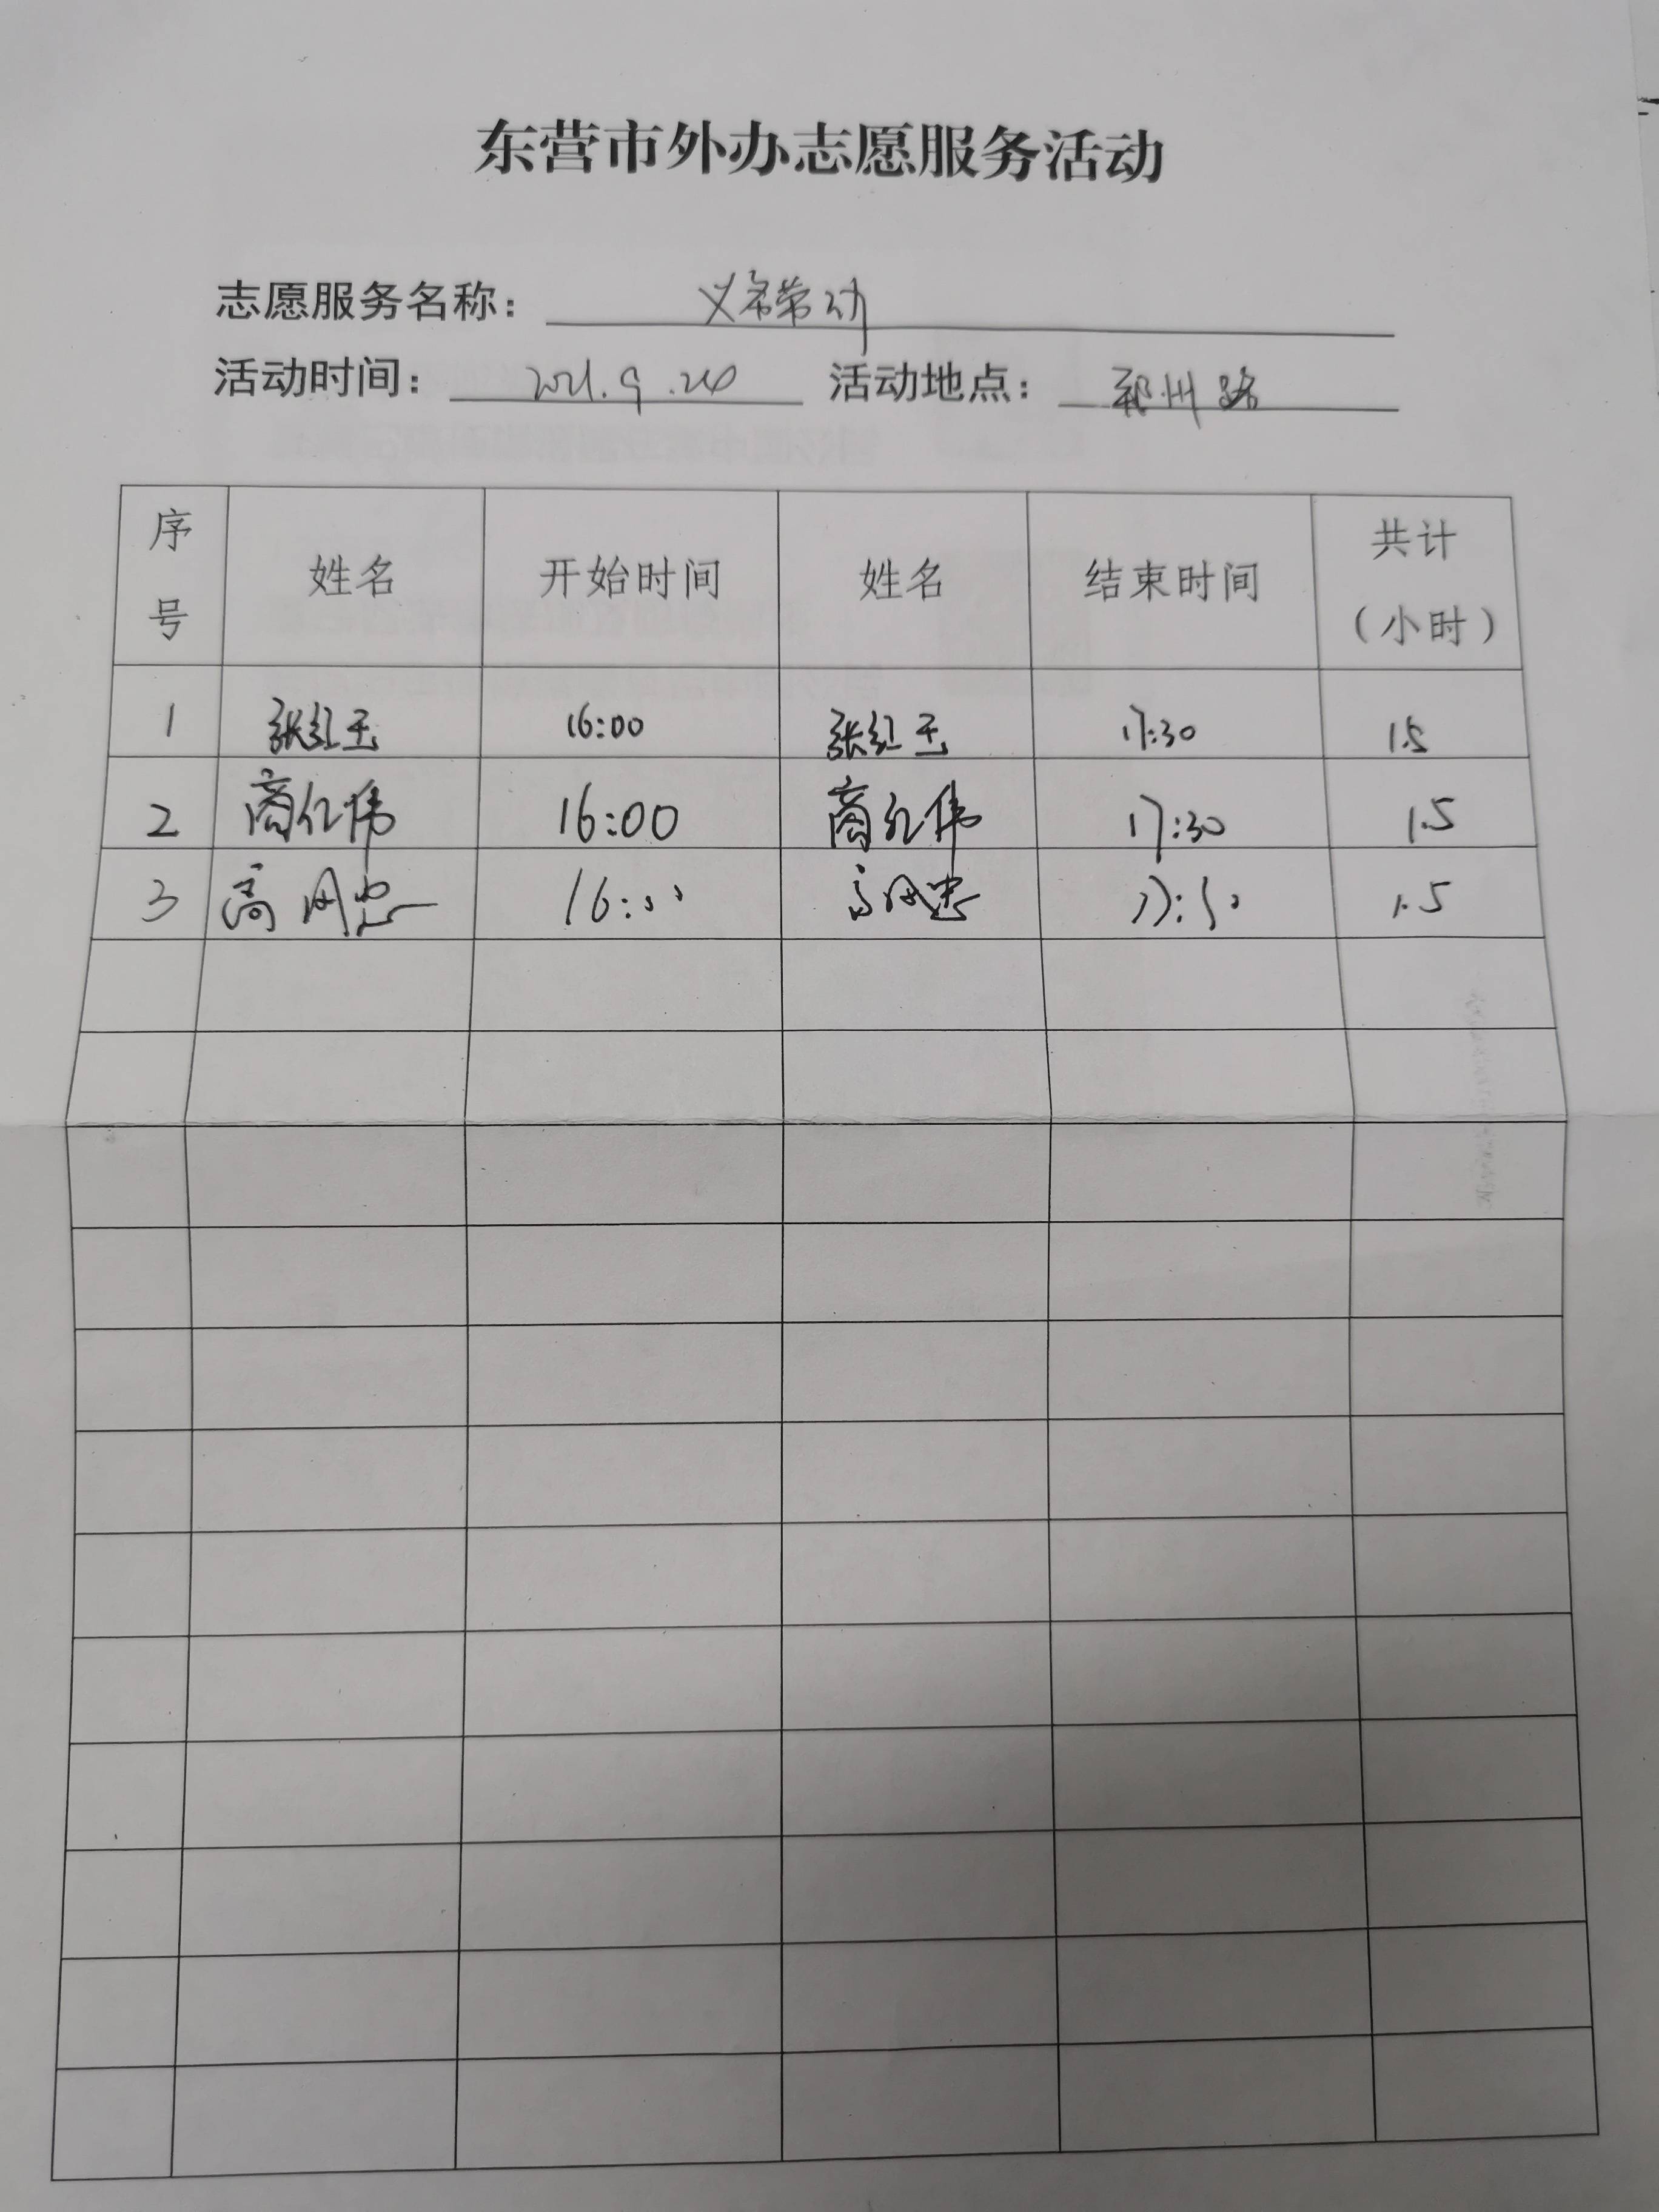 东营市外办志愿服务活动
志愿服务名称：义务劳动
活动时间：2021.9.26 活动地点：郑州路
序号 姓名 开始时间 姓名 结束时间 共计（小时）
1 张红玉 16:00 张红玉 17:30 1.5
2 商红伟 16:00 商红伟 17:30 1.5
3 高 16:00 高 17:30 1.5